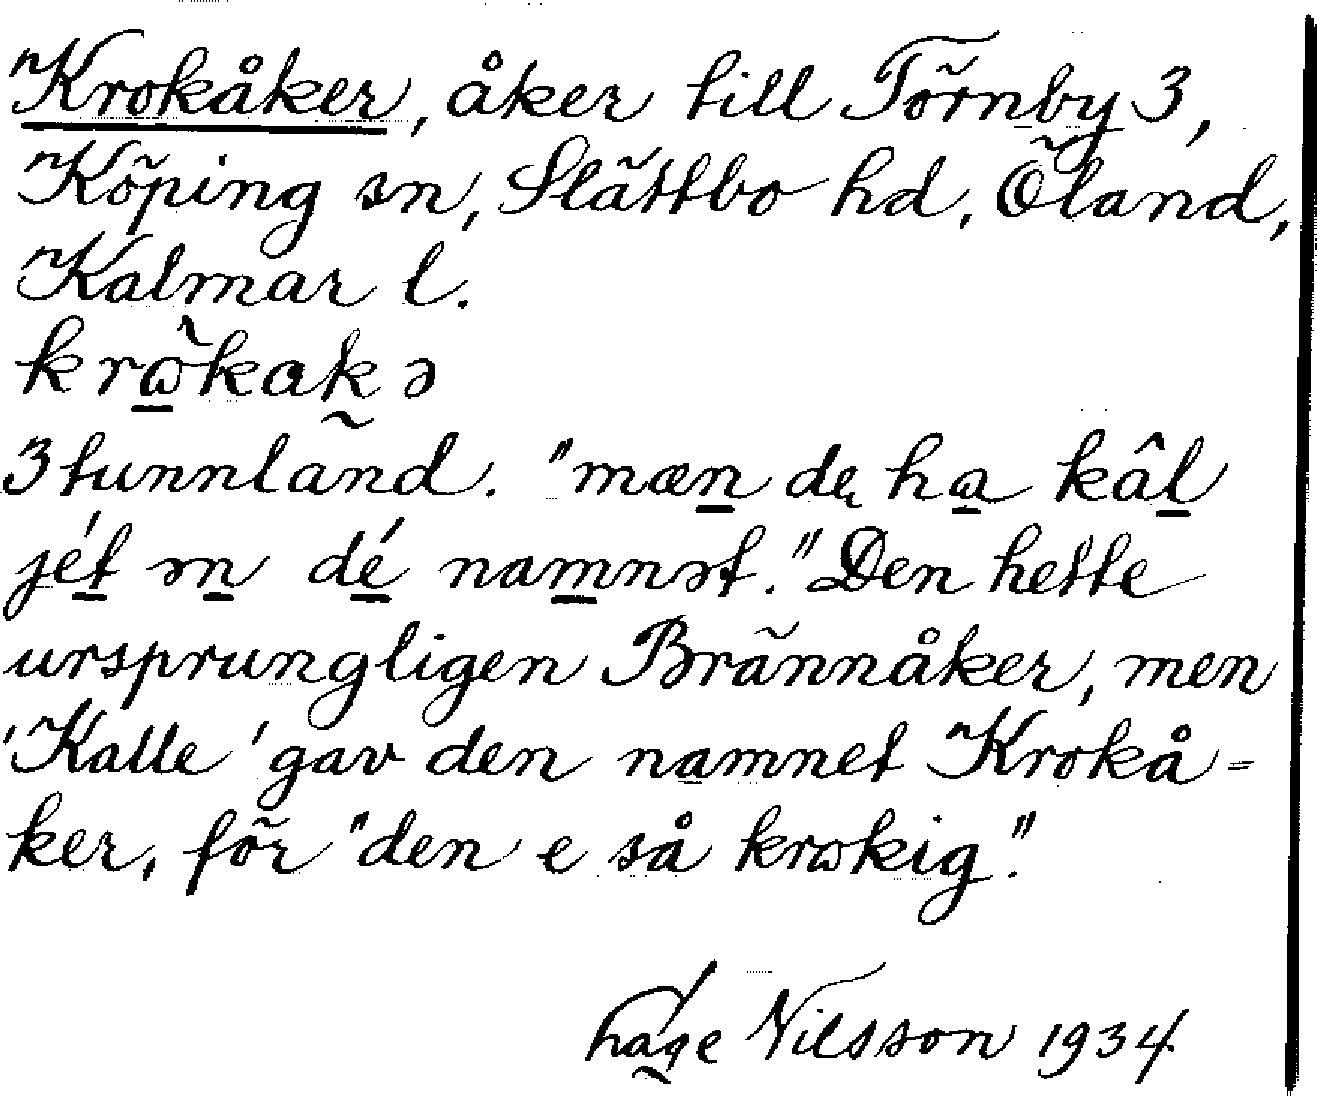 Krokåker, åker till Törnby 3,
Köping sn, Slättbo hd, Öland,
Kalmar l.
krὼkakə
3 tunnland. "mæn dę ha kâl
jét ən dé namnət." Den hette
ursprungligen Brännåker, men
'Kalle' gav den namnet Krokå=
ker, för "den e så krωkig."
Nilsson 1934.